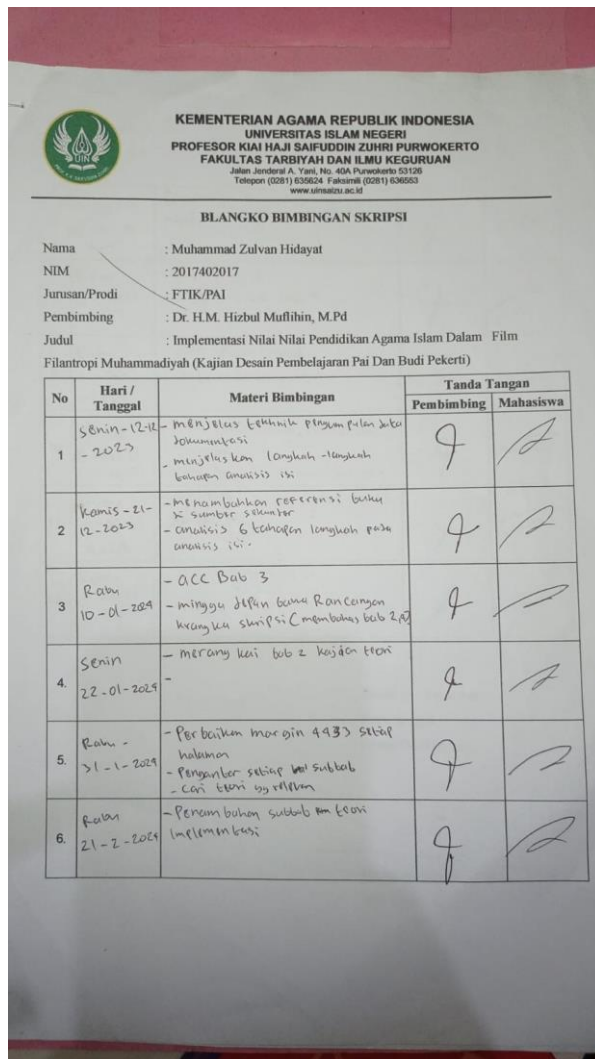 KEMENTERIAN AGAMA REPUBLIK INDONESIA
UNIVERSITAS ISLAM NEGERI
PROFESOR KIAI HAJI SAIFUDDIN ZUHRI PURWOKERTO
FAKULTAS TARBIYAH DAN ILMU KEGURUAN
Jalan Jenderal A. Yani, No. 40A Purwokerto 53126
Telepon (0281) 635624 Faksimili (0281) 636553
www.uinsaizu.ac.id
UIN
BLANGKO BIMBINGAN SKRIPSI
Nama : Muhammad Zulvan Hidayat
NIM : 2017402017
Jurusan/Prodi : FTIK/PAI
Pembimbing : Dr. H.M. Hizbul Muflihin, M.Pd
Judul : Implementasi Nilai Nilai Pendidikan Agama Islam Dalam Film
Filantropi Muhammadiyah (Kajian Desain Pembelajaran Pai Dan Budi Pekerti)
No Hari / Tanggal Materi Bimbingan Tanda Tangan
Pembimbing Mahasiswa
1 Senin-12-12 - 2023
- menjelas tekhnik pengumpulan data
dokumentasi
- menjelaskan langkah-langkah
tahapan analisis isi
2 Kamis-21-
12-2023
- menambahkan referensi buku
sumber sekunder
- analisis 6 tahapan langkah pada
analisis isi.
3 Rabu
10-01-2024
- ACC Bab 3
- minggu depan bawa Rancangan
krangka skripsi (membahas bab 2
4. Senin
22-01-2024
- merangkai bab 2 kajian teori
-
5. Rabu -
31-1-2024
- Perbaikan margin 4433 setiap
halaman
- Pengantar setiap subbab
- cari teori yg relevan
6. Rabu
21-2-2024
- Penambahan subbab teori
Implementasi